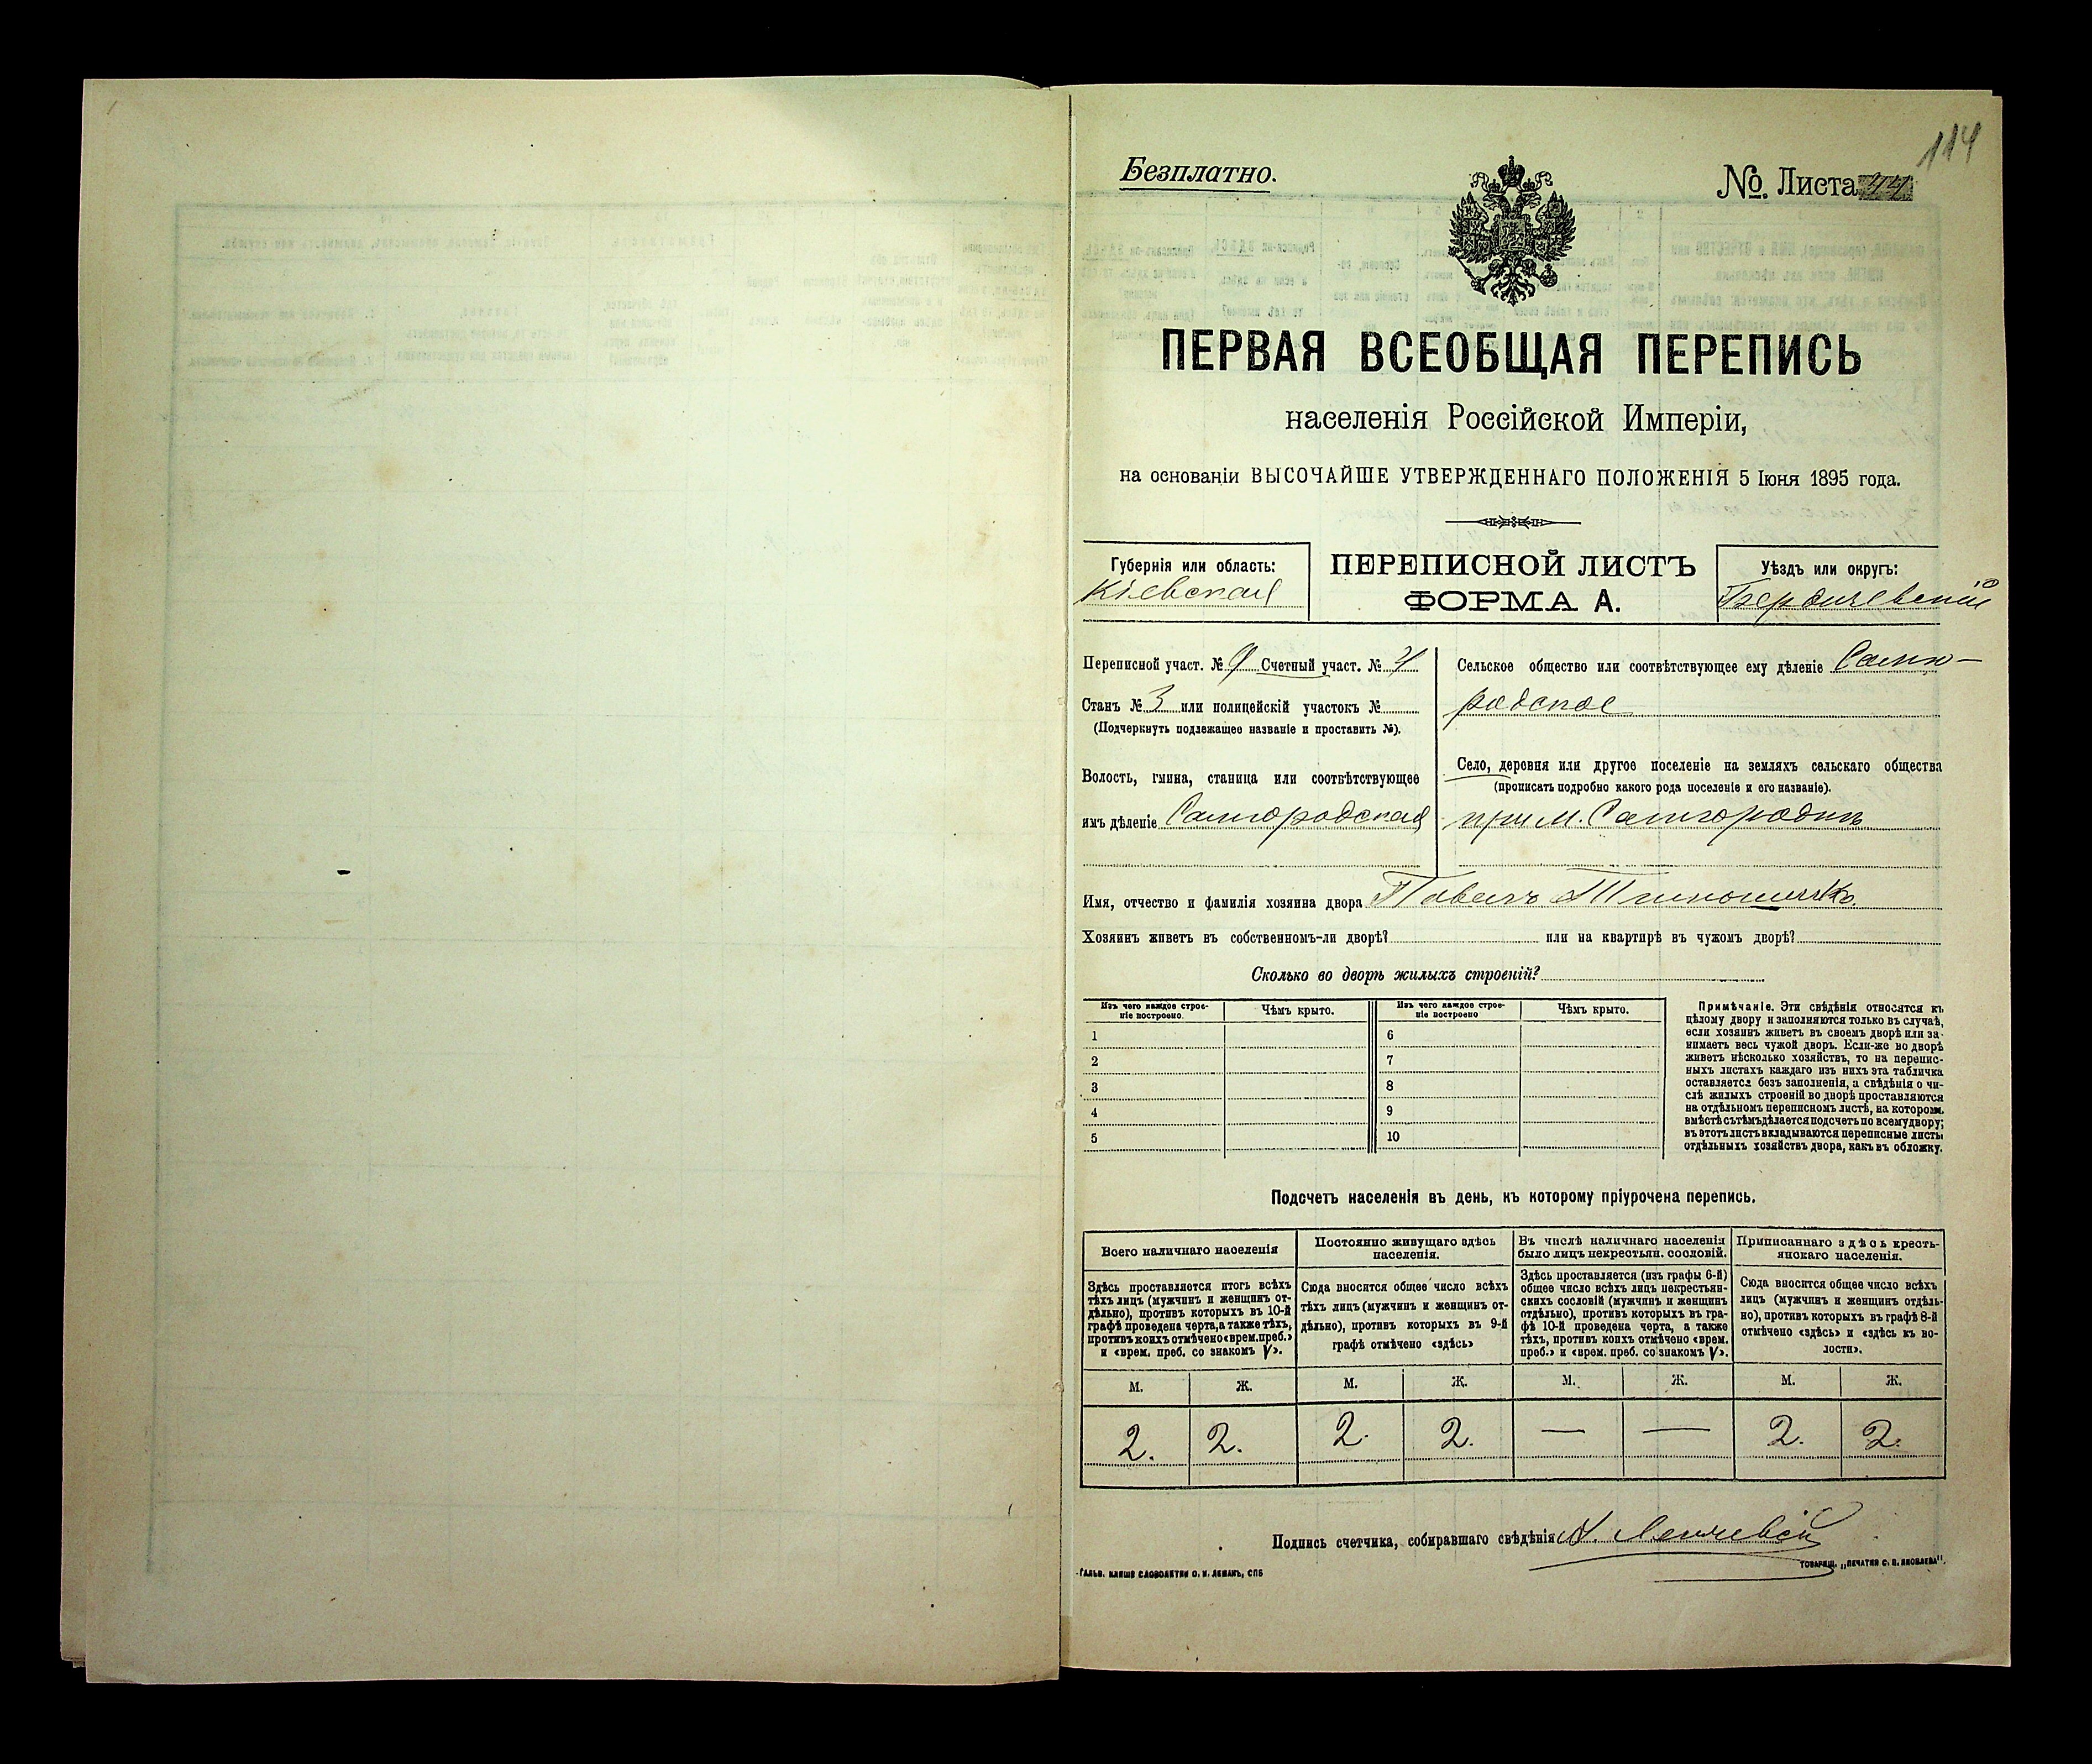 114
Безплатно.
№. Листа 44
ПЕРВАЯ ВСЕОБЩАЯ ПЕРЕПИСЬ
населенія Россійской Имперіи,
на основаніи ВЫСОЧАЙШЕ УТВЕРЖДЕННАГО ПОЛОЖЕНІЯ 5 Іюня 1895 года.
Губернія или область:
Кіевская
ПЕРЕПИСНОЙ ЛИСТЪ
ФОРМА А.
Уѣздъ или округъ:
Бердичевскій
Переписной участ. № 9 Счетный участ. № 4
Станъ № 3 или полицейскій участокъ №
(Подчеркнуть подлежащее названіе и проставить №).
Волость, гмина, станица или соотвѣтствующее
имъ дѣленіе Самгородская
Сельское общество или соотвѣтствующее ему дѣленіе Самго-
родское
Село, деревня или другое поселеніе на земляхъ сельскаго общества
(прописать подробно какого рода поселеніе и его названіе).
при м. Самгородкѣ
Имя, отчество и фамилія хозяина двора Павелъ
Хозяинъ живетъ въ собственномъ-ли дворѣ? или на квартирѣ въ чужомъ дворѣ?
Сколько во дворѣ жилыхъ строеній?
Изъ чего каждое строе-
ніе построено.
Чѣмъ крыто.
Изъ чего каждое строе-
ніе построено
Чѣмъ крыто.
1 6
2 7
3 8
4 9
5 10
Примѣчаніе. Эти свѣдѣнія относятся къ
цѣлому двору и заполняются только въ случаѣ,
если хозяинъ живетъ въ своемъ дворѣ или за-
нимаетъ весь чужой дворъ. Если-же во дворѣ
живетъ нѣсколько хозяйствъ, то на перепис-
ныхъ листахъ каждаго изъ нихъ эта табличка
оставляется безъ заполненія, а свѣдѣнія о чи-
слѣ жилыхъ строеній во дворѣ проставляются
на отдѣльномъ переписномъ листѣ, на которомъ
вмѣстѣ съ тѣмъ дѣлается подсчетъ по всему двору;
въ этотъ листъ вкладываются переписные листы
отдѣльныхъ хозяйствъ двора, какъ въ обложку.
Подсчетъ населенія въ день, къ которому пріурочена перепись.
Всего наличнаго населенія
Здѣсь проставляется итогъ всѣхъ
тѣхъ лицъ (мужчинъ и женщинъ от-
дѣльно), противъ которыхъ въ 10-й
графѣ проведена черта, а также тѣхъ,
противъ коихъ отмѣчено «врем. преб.»
и «врем. преб. со знакомъ V».
Постоянно живущаго здѣсь
населенія.
Сюда вносится общее число всѣхъ
тѣхъ лицъ (мужчинъ и женщинъ от-
дѣльно), противъ которыхъ въ 9-й
графѣ отмѣчено «здѣсь»
Въ числѣ наличнаго населенія
было лицъ некрестьян. сословій.
Здѣсь проставляется (изъ графы 6-й)
общее число всѣхъ лицъ некрестьян-
скихъ сословій (мужчинъ и женщинъ
отдѣльно), противъ которыхъ въ гра-
фѣ 10-й проведена черта, а также
тѣхъ, противъ коихъ отмѣчено «врем.
преб.» и «врем. преб. со знакомъ V».
Приписаннаго здѣсь кресть-
янскаго населенія.
Сюда вносится общее число всѣхъ
лицъ (мужчинъ и женщинъ отдѣль-
но), противъ которыхъ въ графѣ 8-й
отмѣчено «здѣсь» и «здѣсь къ во-
лости».
М. Ж. М. Ж. М. Ж. М. Ж.
2. 2. 2. 2. — — 2. 2.
Подпись счетчика, собиравшаго свѣдѣнія
ГАЛЬВ. КЛИШЕ СЛОВОЛИТНИ О. И. ЛЕМАНЪ, СПБ
ТОВАРИЩ. „ПЕЧАТНЯ С. П. ЯКОВЛЕВА".